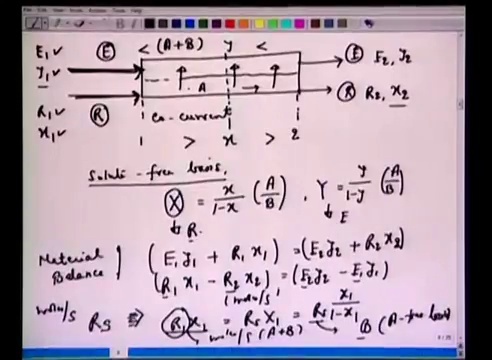 E₁ ✓ Ⓔ < (A+B) y < Ⓔ E₂, y₂
y₁ ✓
A
R₁ ✓ Ⓡ Ⓡ R₂, x₂
x₁ ✓ Co-current
1 > x > 2
Solute-free basis.
X = x/(1-x) (A/B), Y = y/(1-y) (A/B)
↓ R. ↓ E
Material Balance } (E₁ y₁ + R₁ x₁) = (E₂ y₂ + R₂ x₂)
(R₁ x₁ - R₂ x₂) = (E₂ y₂ - E₁ y₁)
(moles/s)
moles/s Rs ⇒ R₁x₁ = Rs X₁ = Rs x₁/(1-x₁)
moles/s (A+B) B (A-free basis)